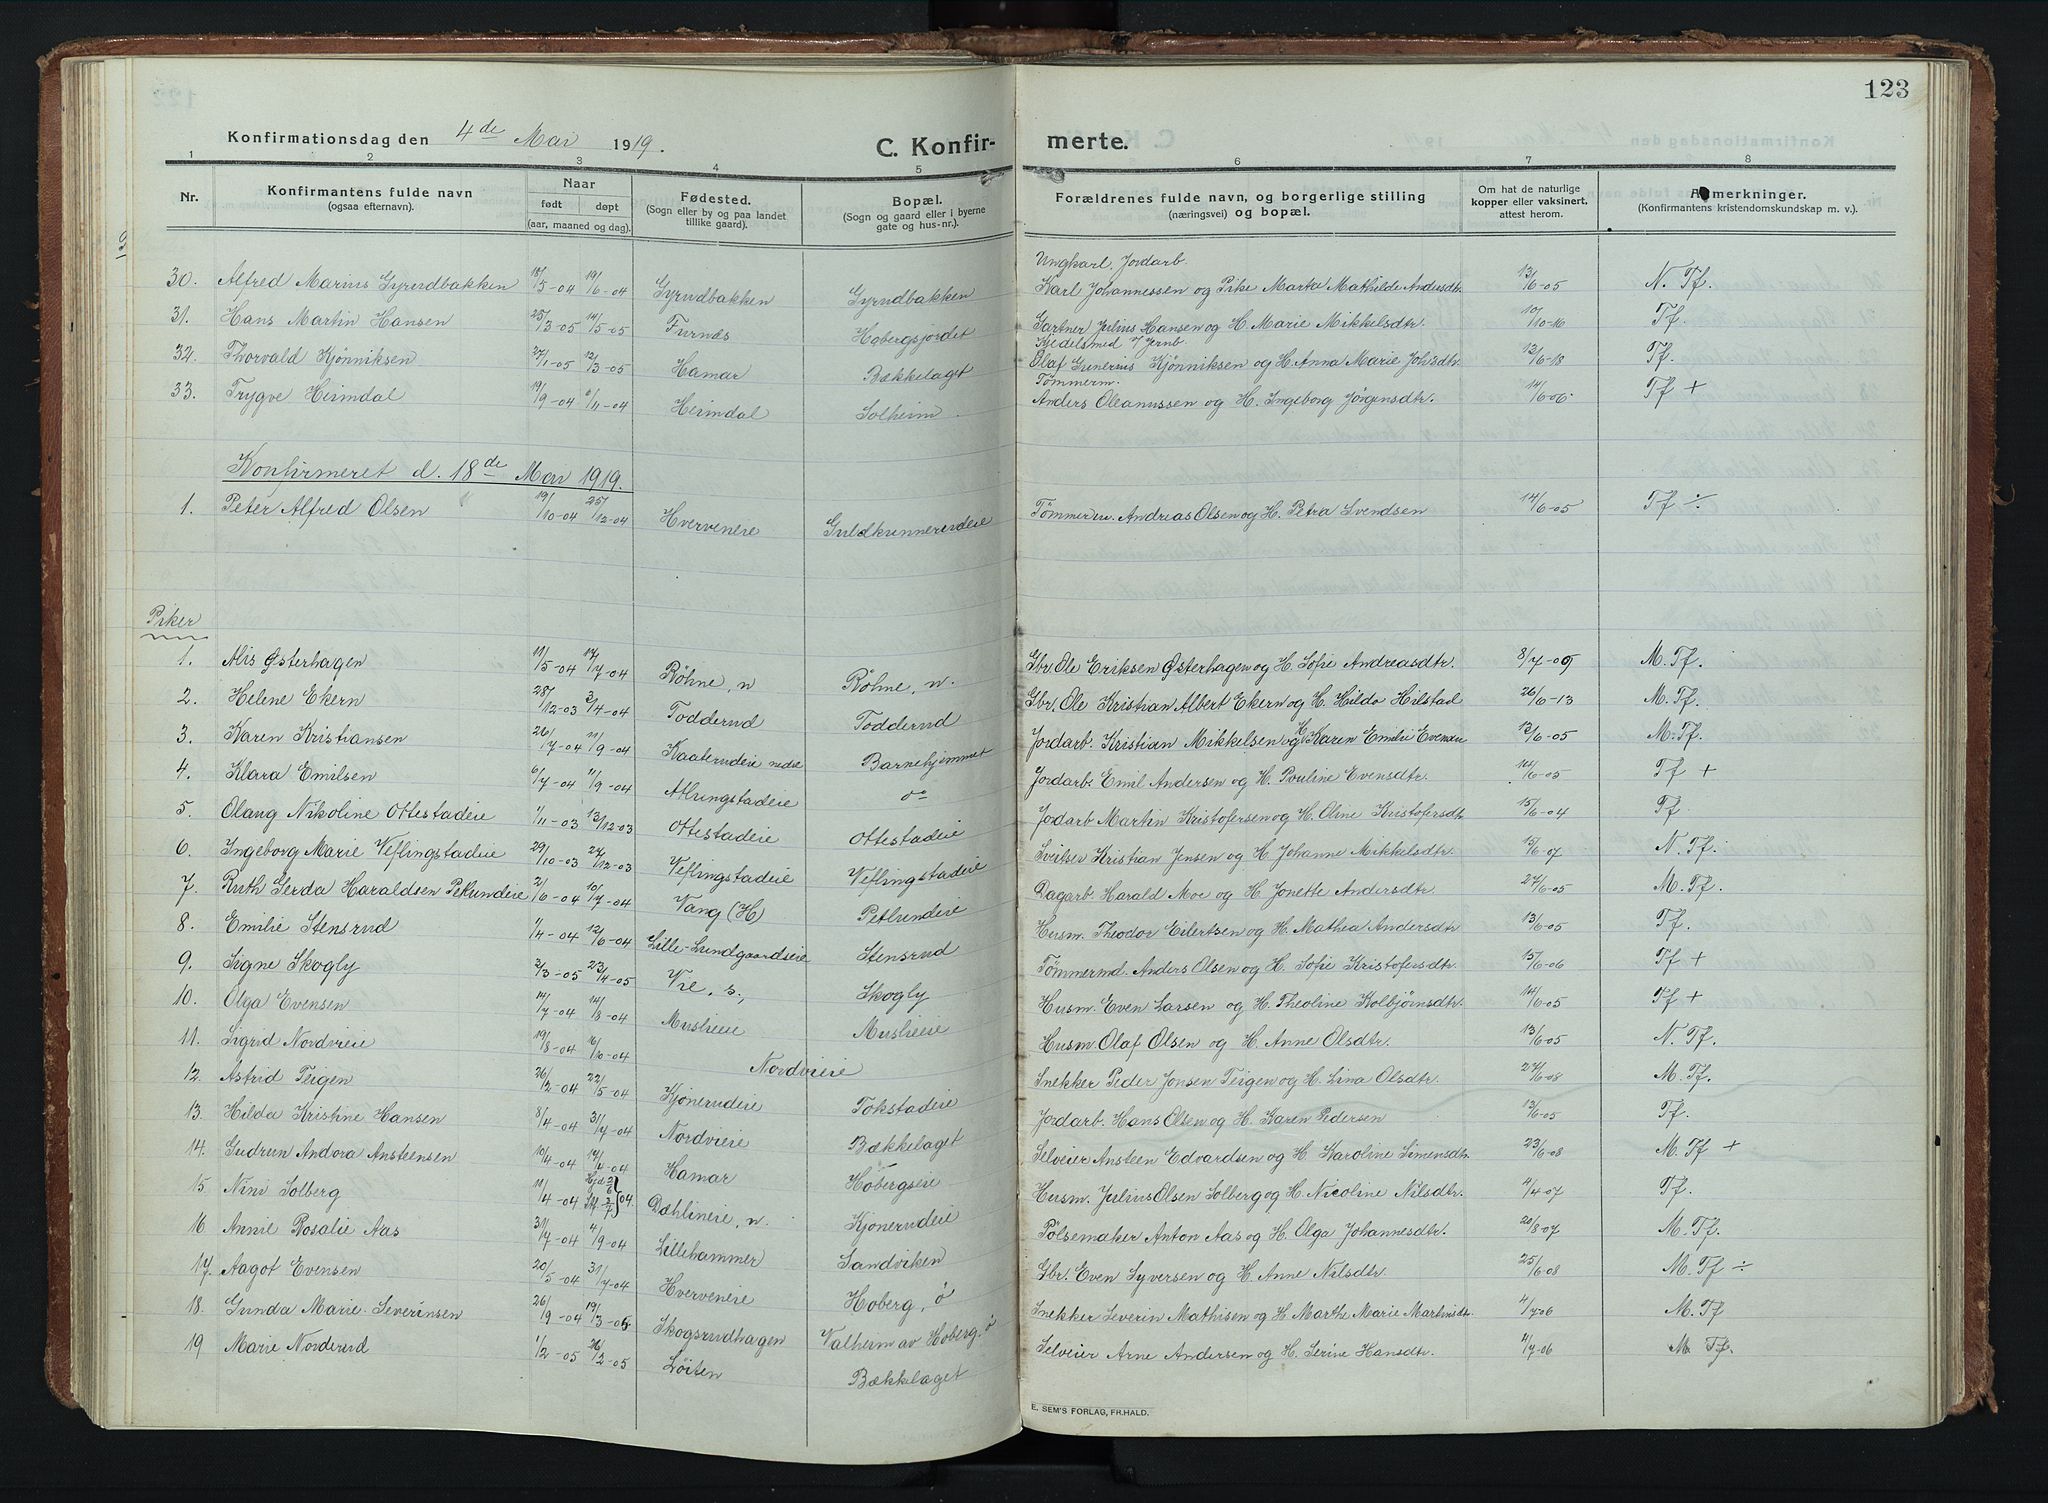 123
Konfirmationsdag den 4de Mai 1919. C. Konfir- merte.
1 2 3 4 5 6 7 8
Nr. Konfirmantens fulde navn (ogsaa efternavn). Naar født døpt (aar, maaned og dag). Fødested. (Sogn eller by og paa landet tillike gaard). Bopæl. (Sogn og gaard eller i byerne gate og hus-nr.). Forældrenes fulde navn, og borgerlige stilling (næringsvei) og bopæl. Om hat de naturlige kopper eller vaksinert, attest herom. Anmerkninger. (Konfirmantens kristendomskundskap m. v.).
Ungkarl. Jordarb.
30. Alfred Marius Gyrudbakken 18/5-04 19/6-04 Gyrudbakken Gyrudbakken Karl Johannessen og Pike Marta Mathilde Andersdtr. 13/6-05 N. Tf.
31. Hans Martin Hansen 25/3-05 14/5-05 Furnes Hobergsjordet Gartner Julius Hansen og H. Marie Mikkelsdtr. 10/10-16 Tf.
Kjedelsmed v/ Jernb.
32. Thorvald Kjønniksen 27/1-05 12/3-05 Hamar Bækkelaget Olaf Gunerius Kjønniksen og H. Anna Marie Johsdtr. 12/6-18 Tf.
Tømmerm.
33. Trygve Heimdal 19/9-04 6/11-04 Heimdal Solheim Anders Oleanussen og H. Ingeborg Jørgensdtr. 14/6-06. Tf +
Konfirmeret d. 18de Mai 1919.
1. Peter Alfred Olsen 19/10-04 25/12-04 Hverveneie Guldkunnerudeie Tømmerm. Andreas Olsen og H. Petra Svendsen 14/6-05 Tf ÷
Piker
1. Alis Østerhagen 11/5-04 17/7-04 Røhne, n Røhne, n. Gbr. Ole Eriksen Østerhagen og H. Sofie Andreasdtr. 8/7-05 M. Tf.
2. Helene Ekern 28/12-03 3/4-04 Todderud Todderud Gbr. Ole Kristian Albert Ekern og H. Hilda Hilstad 26/6-13 M. Tf.
3. Karen Kristiansen 26/7-04 11/9-04 Kaaterudeie nedre Barnehjemmet Jordarb. Kristian Mikkelsen og H Karen Emilie Evensen 12/6-05 M. Tf.
4. Klara Emilsen 6/7-04 11/9-04 Atlungstadeie do Jordarb. Emil Andersen og H. Pauline Evensdtr. 14/6-05 Tf +
5. Olaug Nikoline Ottestadeie 1/11-03 13/12-03 Ottestadeie Ottestadeie Jordarb Martin Kristofersen og H. Oline Kristofersdtr. 15/6-04 Tf.
6. Ingeborg Marie Veflingstadeie 29/10-03 27/12-03 Veflingstadeie Veflingstadeie Sveitser Kristian Jensen og H. Johanne Mikkelsdtr. 15/6-07 N. Tf.
7. Ruth Gerda Haraldsen Petlundeie 2/6-04 10/7-04 Vang (H) Petlundeie Dagarb. Harald Moe og H. Jonette Andersdtr. 27/6-05 M. Tf.
8. Emilie Stensrud 1/4-04 12/6-04 Lille-Lundgaardseie Stensrud Husm. Theodor Eilertsen og H. Mathea Andersdtr 13/6-05 Tf.
9. Signe Skogly 2/3-05 23/4-05 Vie, s., Skogly Tømmermd. Anders Olsen og H. Sofie Kristofersdtr. 15/6-06 Tf +
10. Olga Evensen 14/7-04 14/8-04 Muslieie Muslieie Husm. Even Larsen og H. Theoline Kolbjørnsdtr. 14/6-05 Tf +
11. Sigrid Nordvieie 19/8-04 16/10-04 Nordvieie Husm. Olaf Olsen og H. Anne Olsdtr. 13/6-05 N. Tf.
12. Astrid Teigen 26/2-04 22/5-04 Kjønerudeie Tokstadeie Snekker Peder Jonsen Teigen og H. Lina Olsdtr. 27/6-08 M. Tf.
13. Hilda Kristine Hansen 8/4-04 31/7-04 Nordvieie Bækkelaget Jordarb. Hans Olsen og H. Karen Pedersen 13/6-05 Tf.
14. Gudrun Andora Ansteensen 10/4-04 14/4-04 Hamar Hobergseie Selveier Ansteen Edvardsen og H. Karoline Simensdtr. 23/6-08 M. Tf +
15. Nini Solberg 11/4-04 Hjd 2/6 St. 2/7} 04. Dæhlineie, n. Kjønerudeie Husm. Julius Olsen Solberg og H. Nicoline Nilsdtr. 4/4-07 Tf.
16 Annie Rosalie Aas 31/7-04 4/9-04 Lillehammer Sandviken Pølsemaker Anton Aas og H. Olga Johannesdtr. 20/8-07 M. Tf.
17. Aagot Evensen 20/5-04 31/7-04 Hverveneie Hoberg, ø Gbr. Even Syversen og H. Anne Nilsdtr. 25/6-08 M. Tf ÷
18. Gunda Marie Severinsen 26/9-04 19/3-05 Skogsrudhagen Valheim av Hoberg. ø Snekker Severin Mathisen og H Marthe Marie Martinsdtr. 4/7-06 M. Tf
19 Marie Norderud 1/2-05 26/2-05 Løiten Bækkelaget Selveier Arne Andersen og H. Serine Hansdtr. 4/7-06 M. Tf.
E. SEM'S FORLAG, FR.HALD.